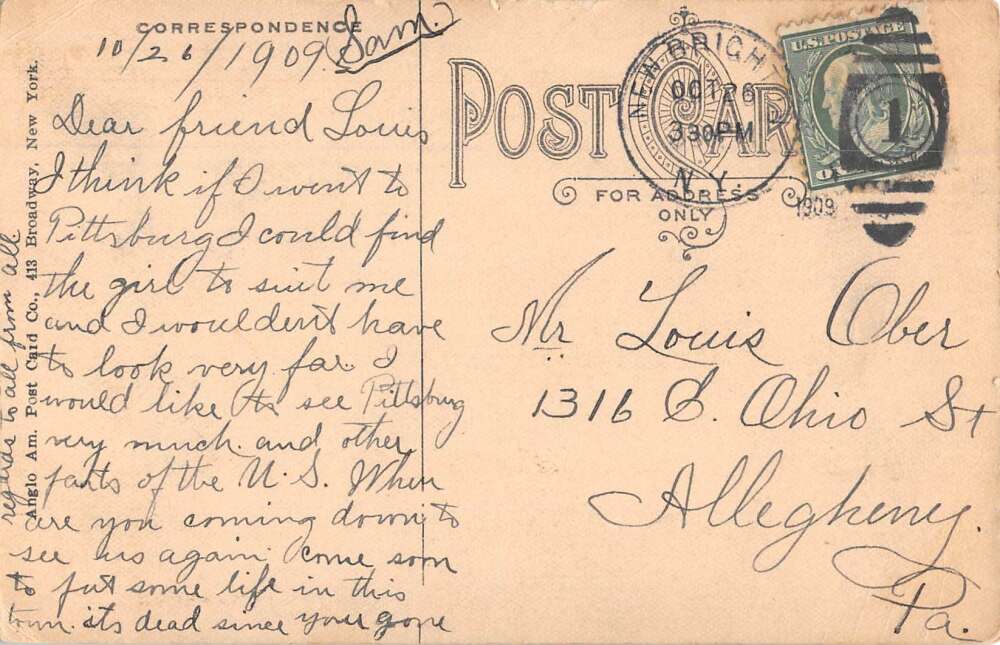 CORRESPONDENCE
10/26/1909. Sam.
Dear friend Louis
I think if I went to
Pittsburg I could find
the girl to suit me
and I woulden't have
to look very far. I
would like to see Pittsburg
very much. and other
parts of the U.S. When
are you coming down to
see us again. come soon
& put some life in this
town. its dead since your gone
regards to all from all.
Anglo Am. Post Card Co., 413 Broadway, New York.
POST CARD
FOR ADDRESS
ONLY
NEW BRIGHT
OCT 26
330PM
N.Y.
1909
U.S. POSTAGE
1
Mr Louis Ober
1316 E. Ohio St
Allegheny.
Pa.